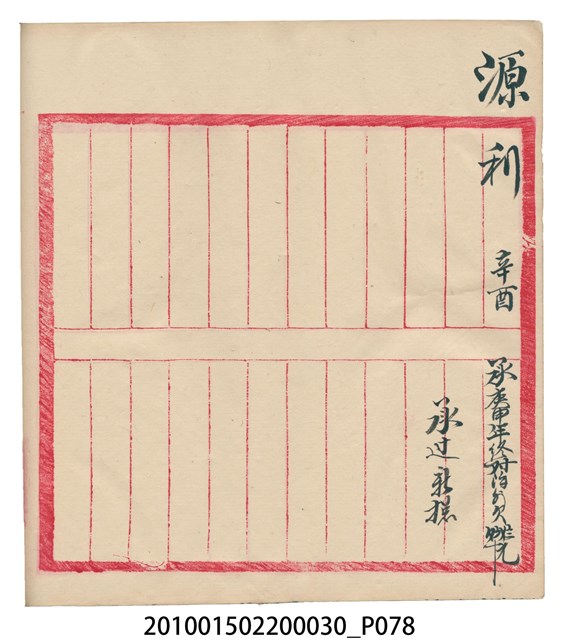 源利 辛酉 承庚申年終對泊欠
承过新摺
201001502200030_P078